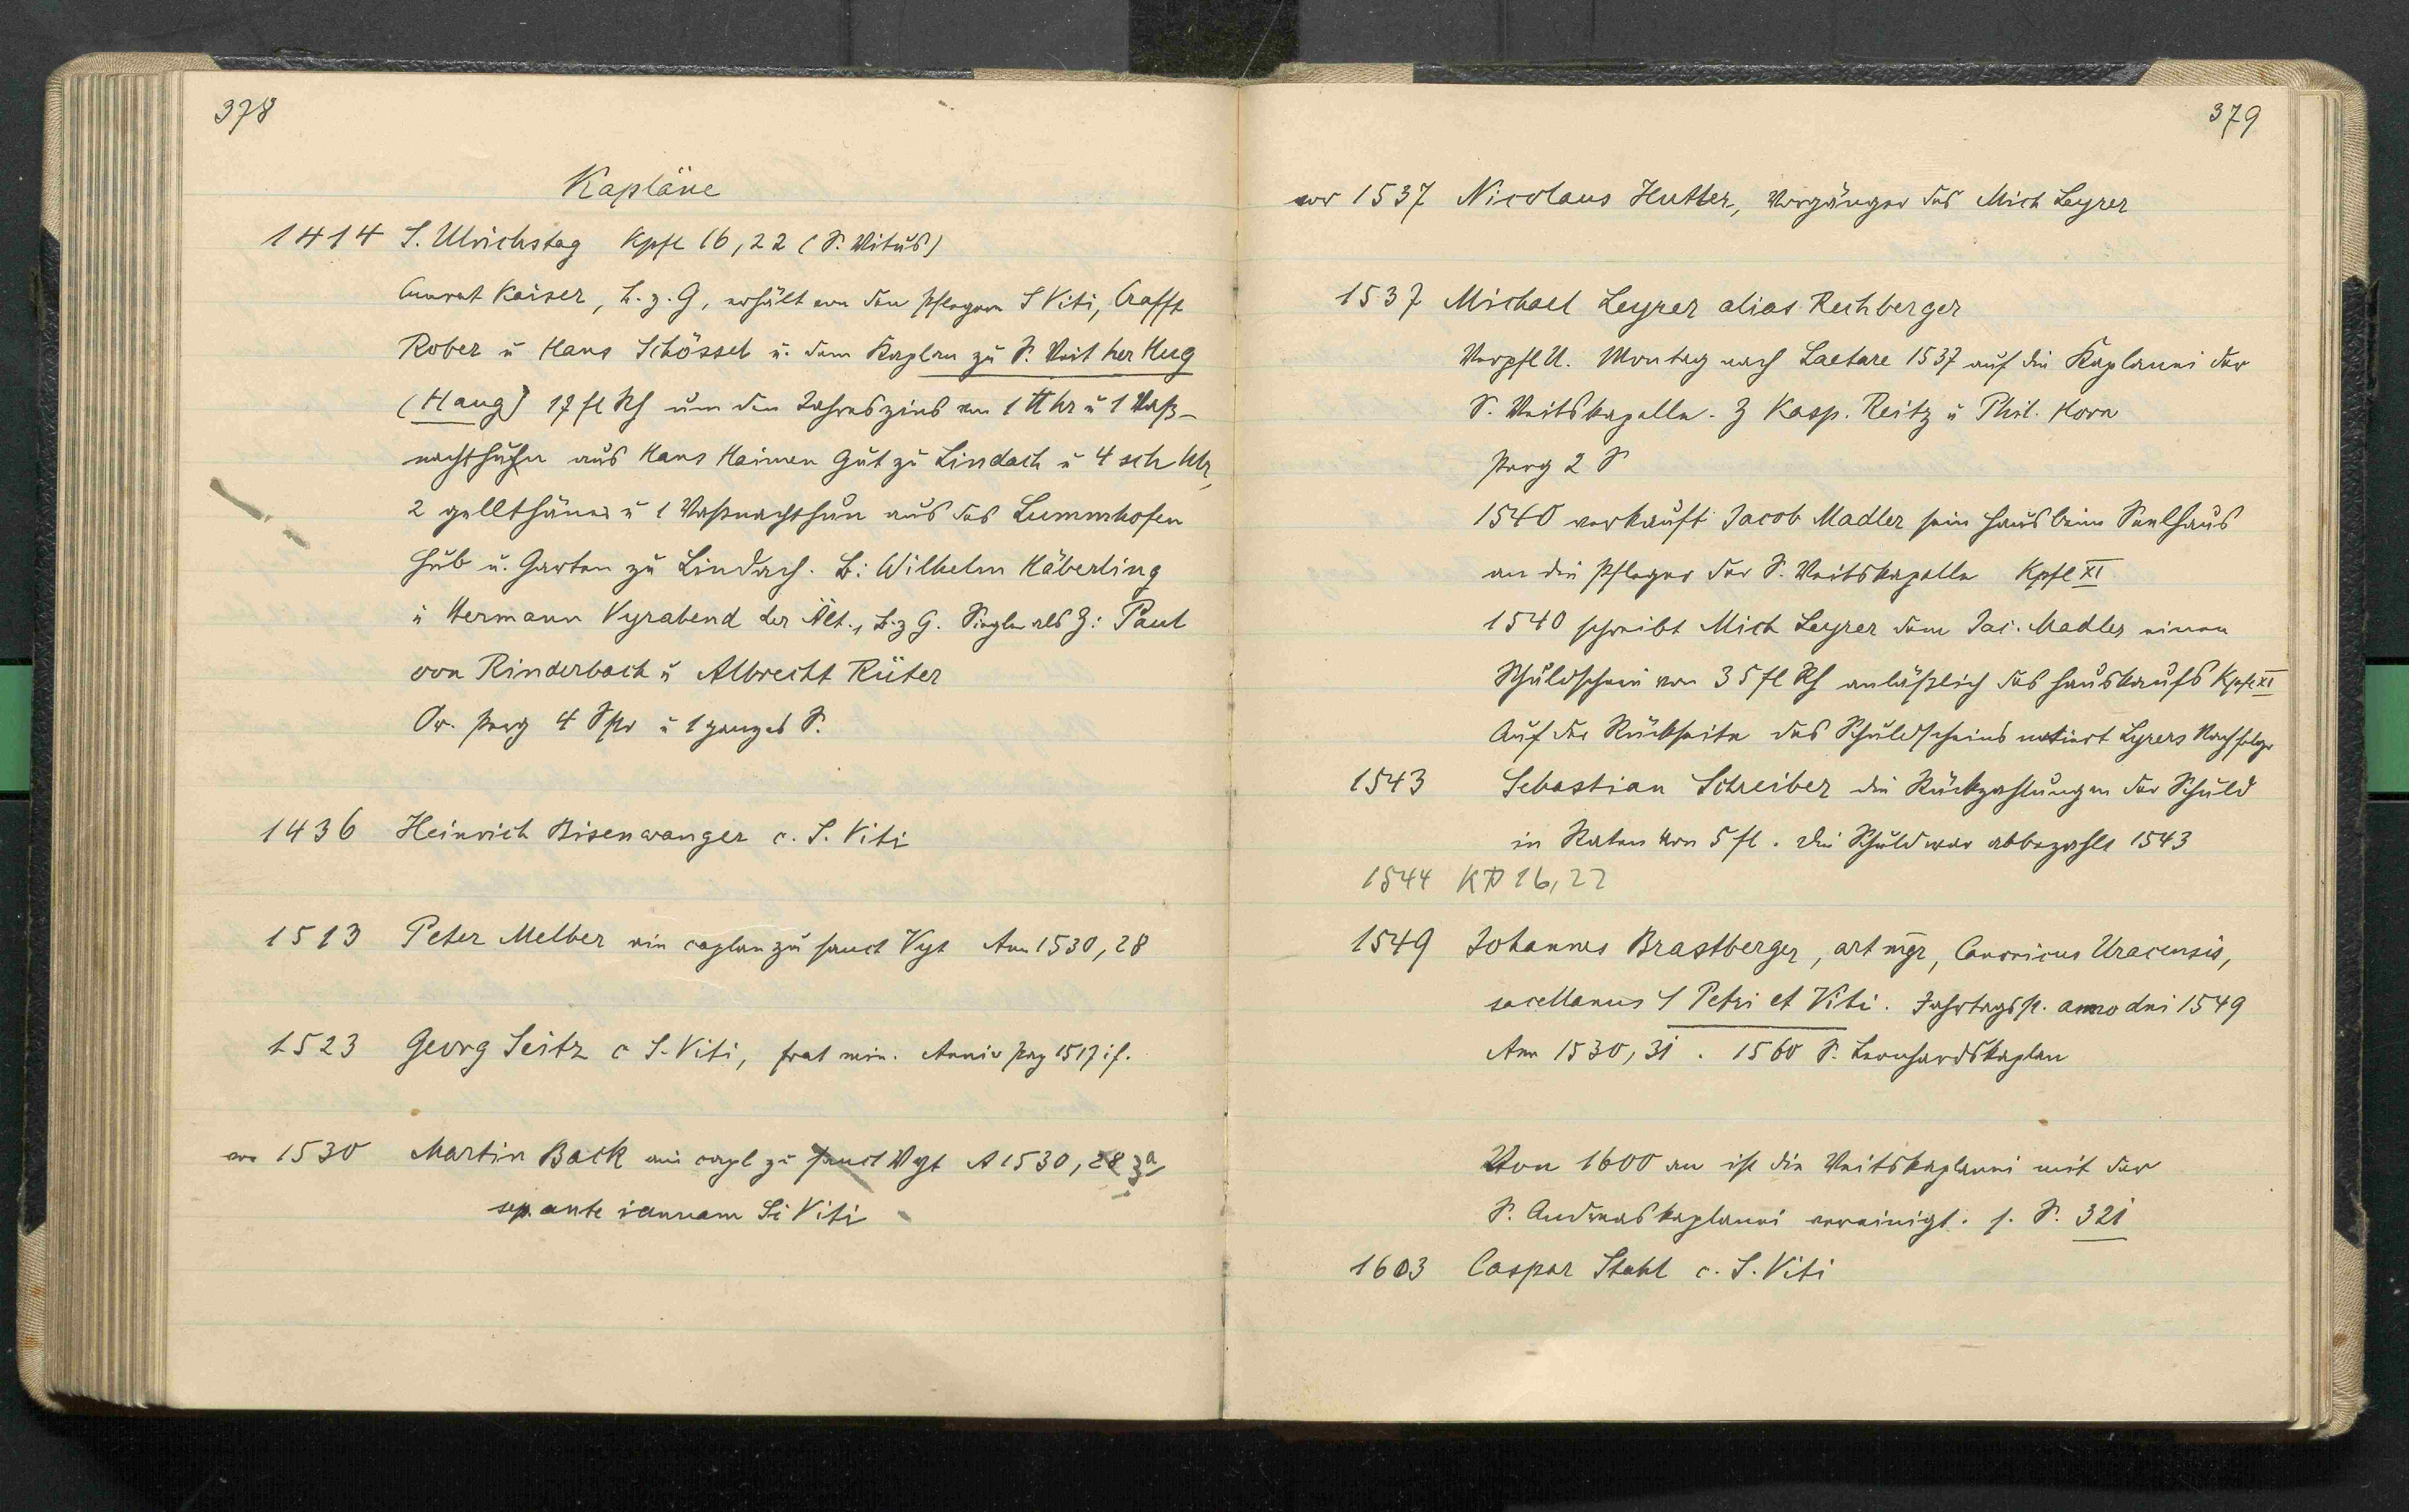 378
Kapläne
1414 S. Ulrichstag Kpfl 16,22 (S. Vitus)
Cunrat Kaiser, b. z. G, erhält von den Pflegern S Viti, Crafft
Rober u Hans Schössel u. dem Kaplan zu S. Veit her Hug
(Haug) 17 fl Rh um den Jahreszins von 1 ℔ hr u 1 Vaß-
nachthuhn aus Hans Haimen Gut zu Lindach u 4 sch hlr,
2 gellthäner u 1 Vaßnachthun aus des Lummhofen
Hub u. Garten zu Lindach. B: Wilhelm Häberling
u Hermann Vyrabend der Ält., b. z G. Siegler als Z: Paul
von Rinderbach u Albrecht Rüter
Or. Perg 4 Spr u 1 ganzes S.
1436 Heinrich Bisenwanger c. S. Viti
1513 Peter Melber ein caplan zu sanct Vyt Ann 1530, 28
1523 Georg Seitz c S. Viti, frat min. Anniv Perg 1517 if.
vor 1530 Martin Back ein capl zu sanct Vyt A 1530, 28 3a
sep. ante ianuam Si Viti
379
vor 1537 Nicolaus Hutter, Vorgänger des Mich Leyrer
1537 Michael Leyrer alias Rechberger
Verpfl U. Montag nach Laetare 1537 auf die Kaplanei der
S. Veitskapelle. Z Kasp. Reitz u Phil. Horn
Perg 2 S
1540 verkauft Jacob Madler sein Haus beim Seelhaus
an die Pfleger der S. Veitskapelle Kpfl XI
1540 schreibt Mich Leyrer dem Jac. Madler einen
Schuldschein von 35 fl Rh anläßlich des Hauskaufs Kpfl XI
Auf der Rückseite des Schuldscheins notiert Lyrers Nachfolger
1543 Sebastian Schreiber die Rückzahlungen der Schuld
in Raten von 5 fl. Die Schuld war abbezahlt 1543
1544 KP 16,22
1549 Johannes Brastberger, art mgr, Canonicus Uracensis,
sacellanus S Petri et Viti. Jahrtagsst. anno dni 1549
Ann 1530, 31. 1560 S. Leonhardskaplan
Von 1600 an ist die Veitskaplanei mit der
S. Andreaskaplanei vereinigt. s. S. 321
1603 Caspar Stahl c. S. Viti